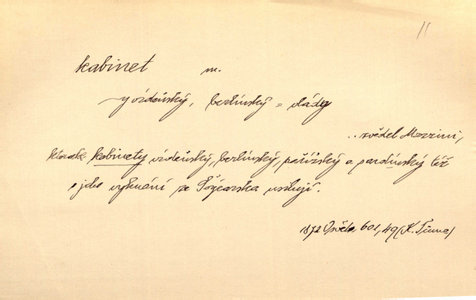 kabinet m.
vídeňský, berlínský = vlády
..zvěděl Mazzini,
kterak kabinety vídeňský, berlínský, pařížský a sardinský též
o jeho vyhnání ze Švýcarska usilují.
1872 Osvěta 601, 49 (K. Tůma)